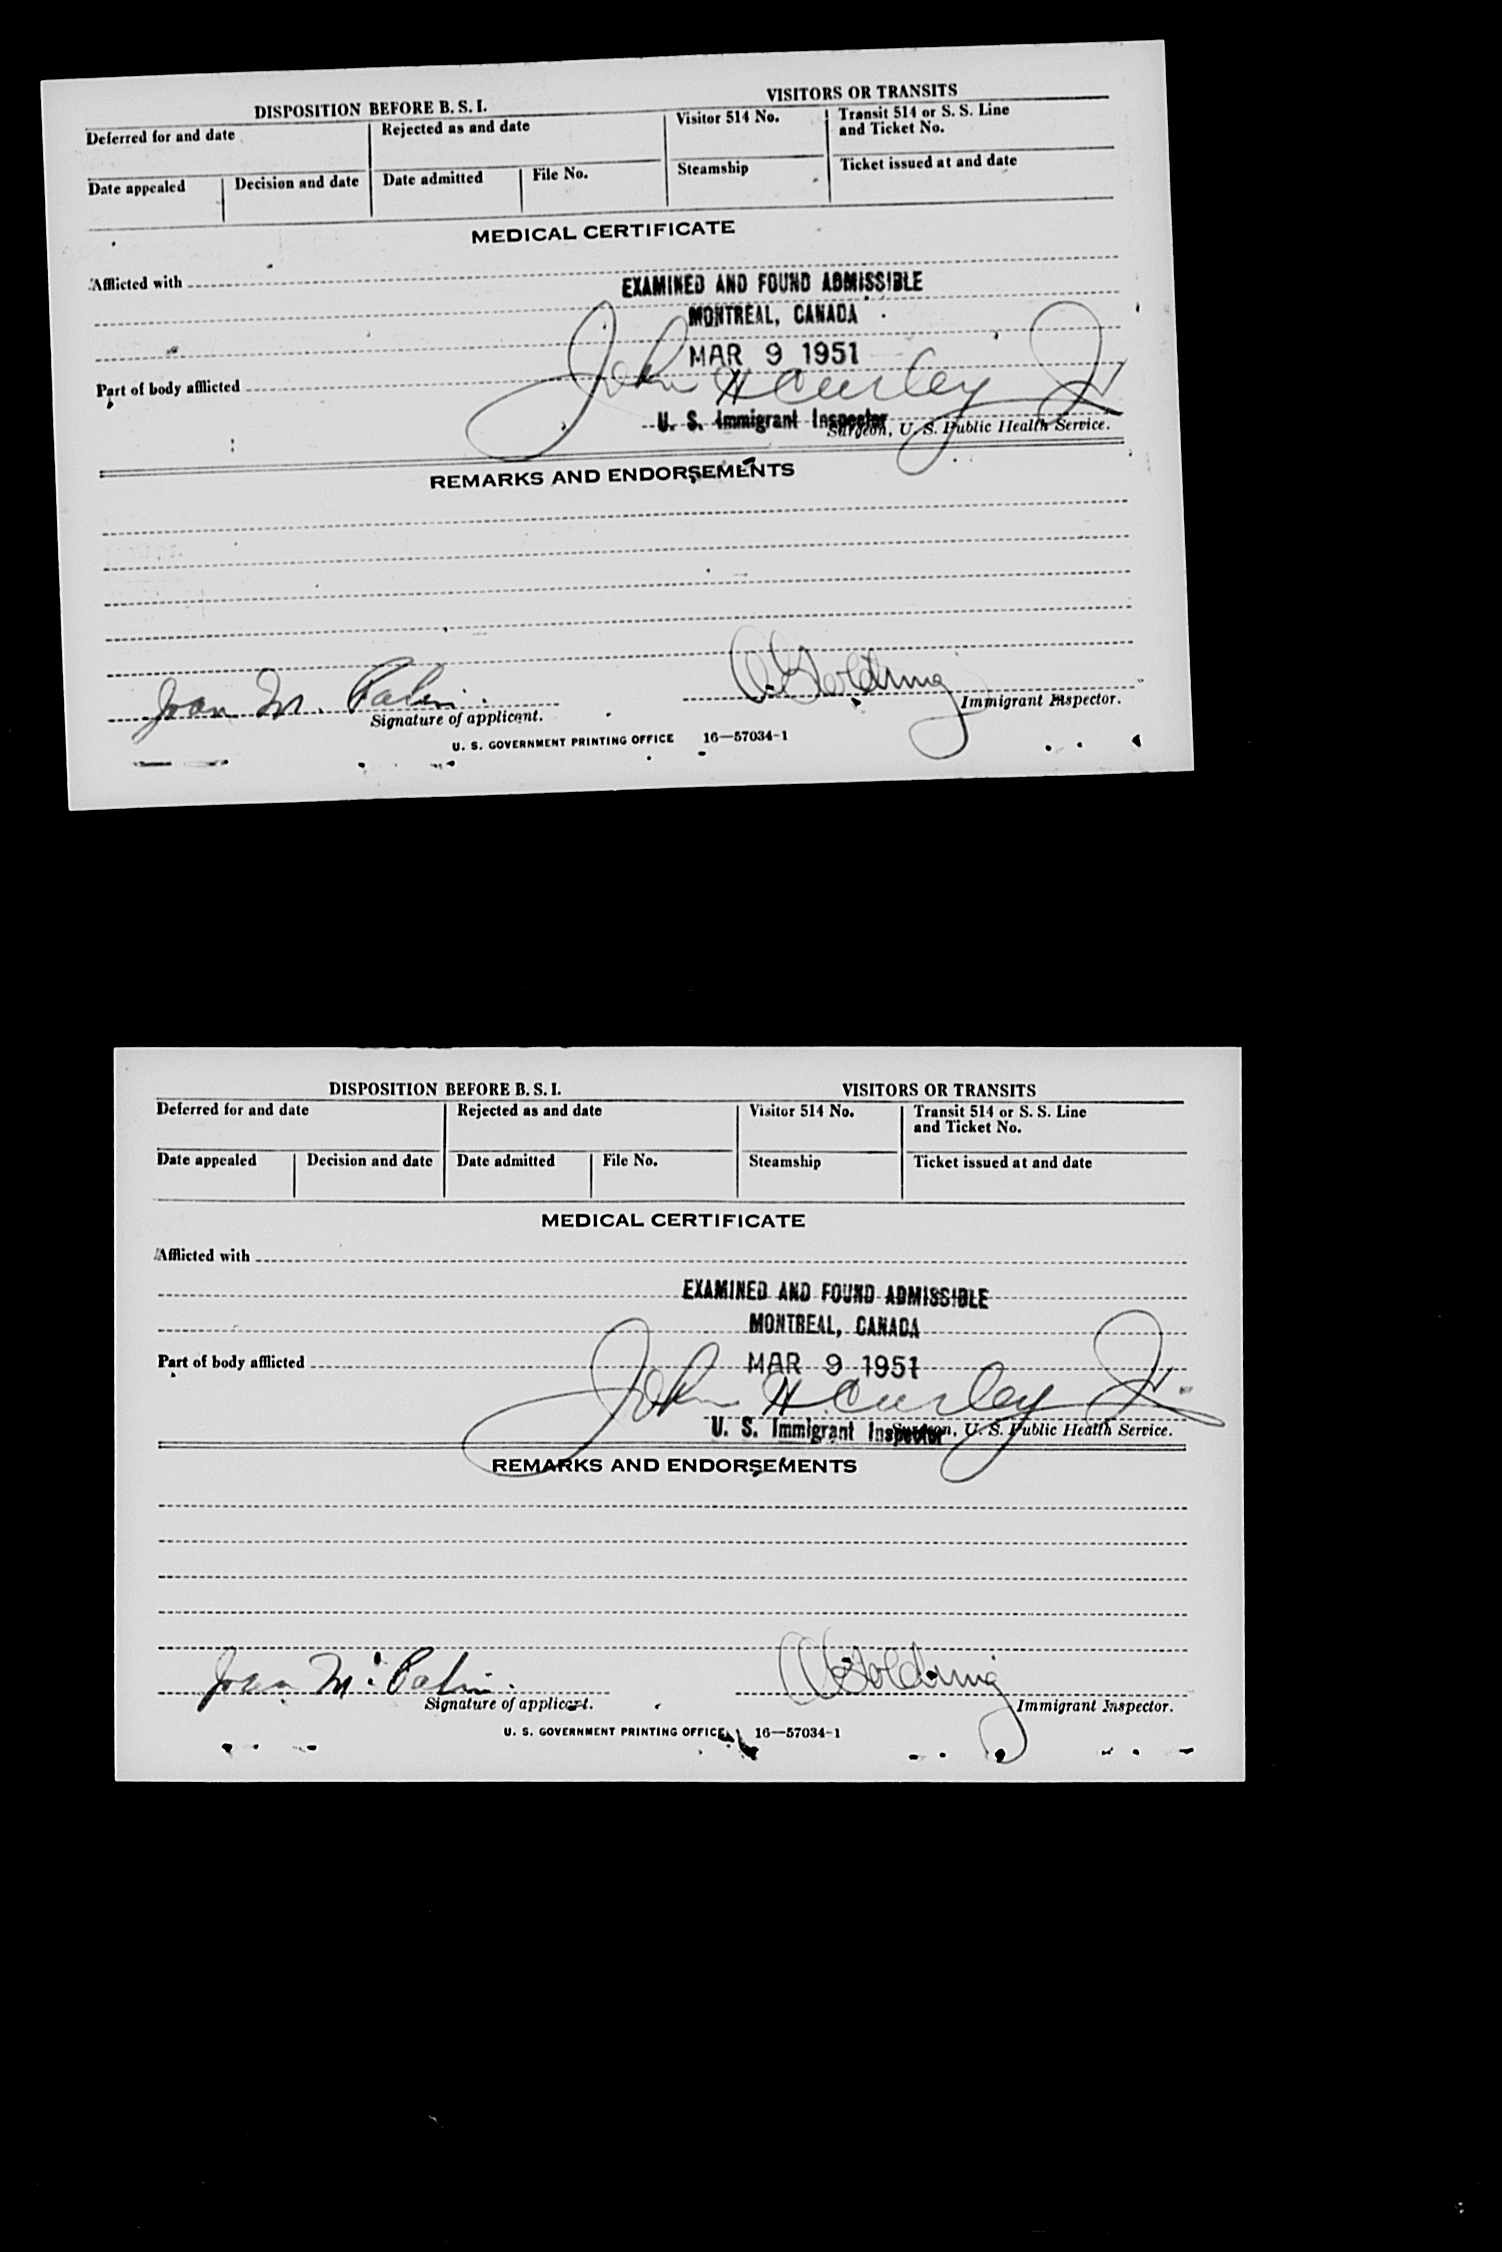 DISPOSITION BEFORE B. S. I.
VISITORS OR TRANSITS
Deferred for and date
Rejected as and date
Visitor 514 No.
Transit 514 or S. S. Line
and Ticket No.
Date appealed
Decision and date
Date admitted
File No.
Steamship
Ticket issued at and date
MEDICAL CERTIFICATE
Afflicted with
EXAMINED AND FOUND ADMISSIBLE
MONTREAL, CANADA
MAR 9 1951
Part of body afflicted
John H Curley Jr
U. S. Immigrant Inspector
Surgeon, U. S. Public Health Service.
REMARKS AND ENDORSEMENTS
Joan M.
Golding
Signature of applicant.
Immigrant Inspector.
U. S. GOVERNMENT PRINTING OFFICE 16—57034-1
DISPOSITION BEFORE B. S. I.
VISITORS OR TRANSITS
Deferred for and date
Rejected as and date
Visitor 514 No.
Transit 514 or S. S. Line
and Ticket No.
Date appealed
Decision and date
Date admitted
File No.
Steamship
Ticket issued at and date
MEDICAL CERTIFICATE
Afflicted with
EXAMINED AND FOUND ADMISSIBLE
MONTREAL, CANADA
Part of body afflicted
MAR 9 1951
John H Curley Jr
U. S. Immigrant Inspector
Surgeon, U. S. Public Health Service.
REMARKS AND ENDORSEMENTS
Joan
Golding
Signature of applicant.
Immigrant Inspector.
U. S. GOVERNMENT PRINTING OFFICE 16—57034-1